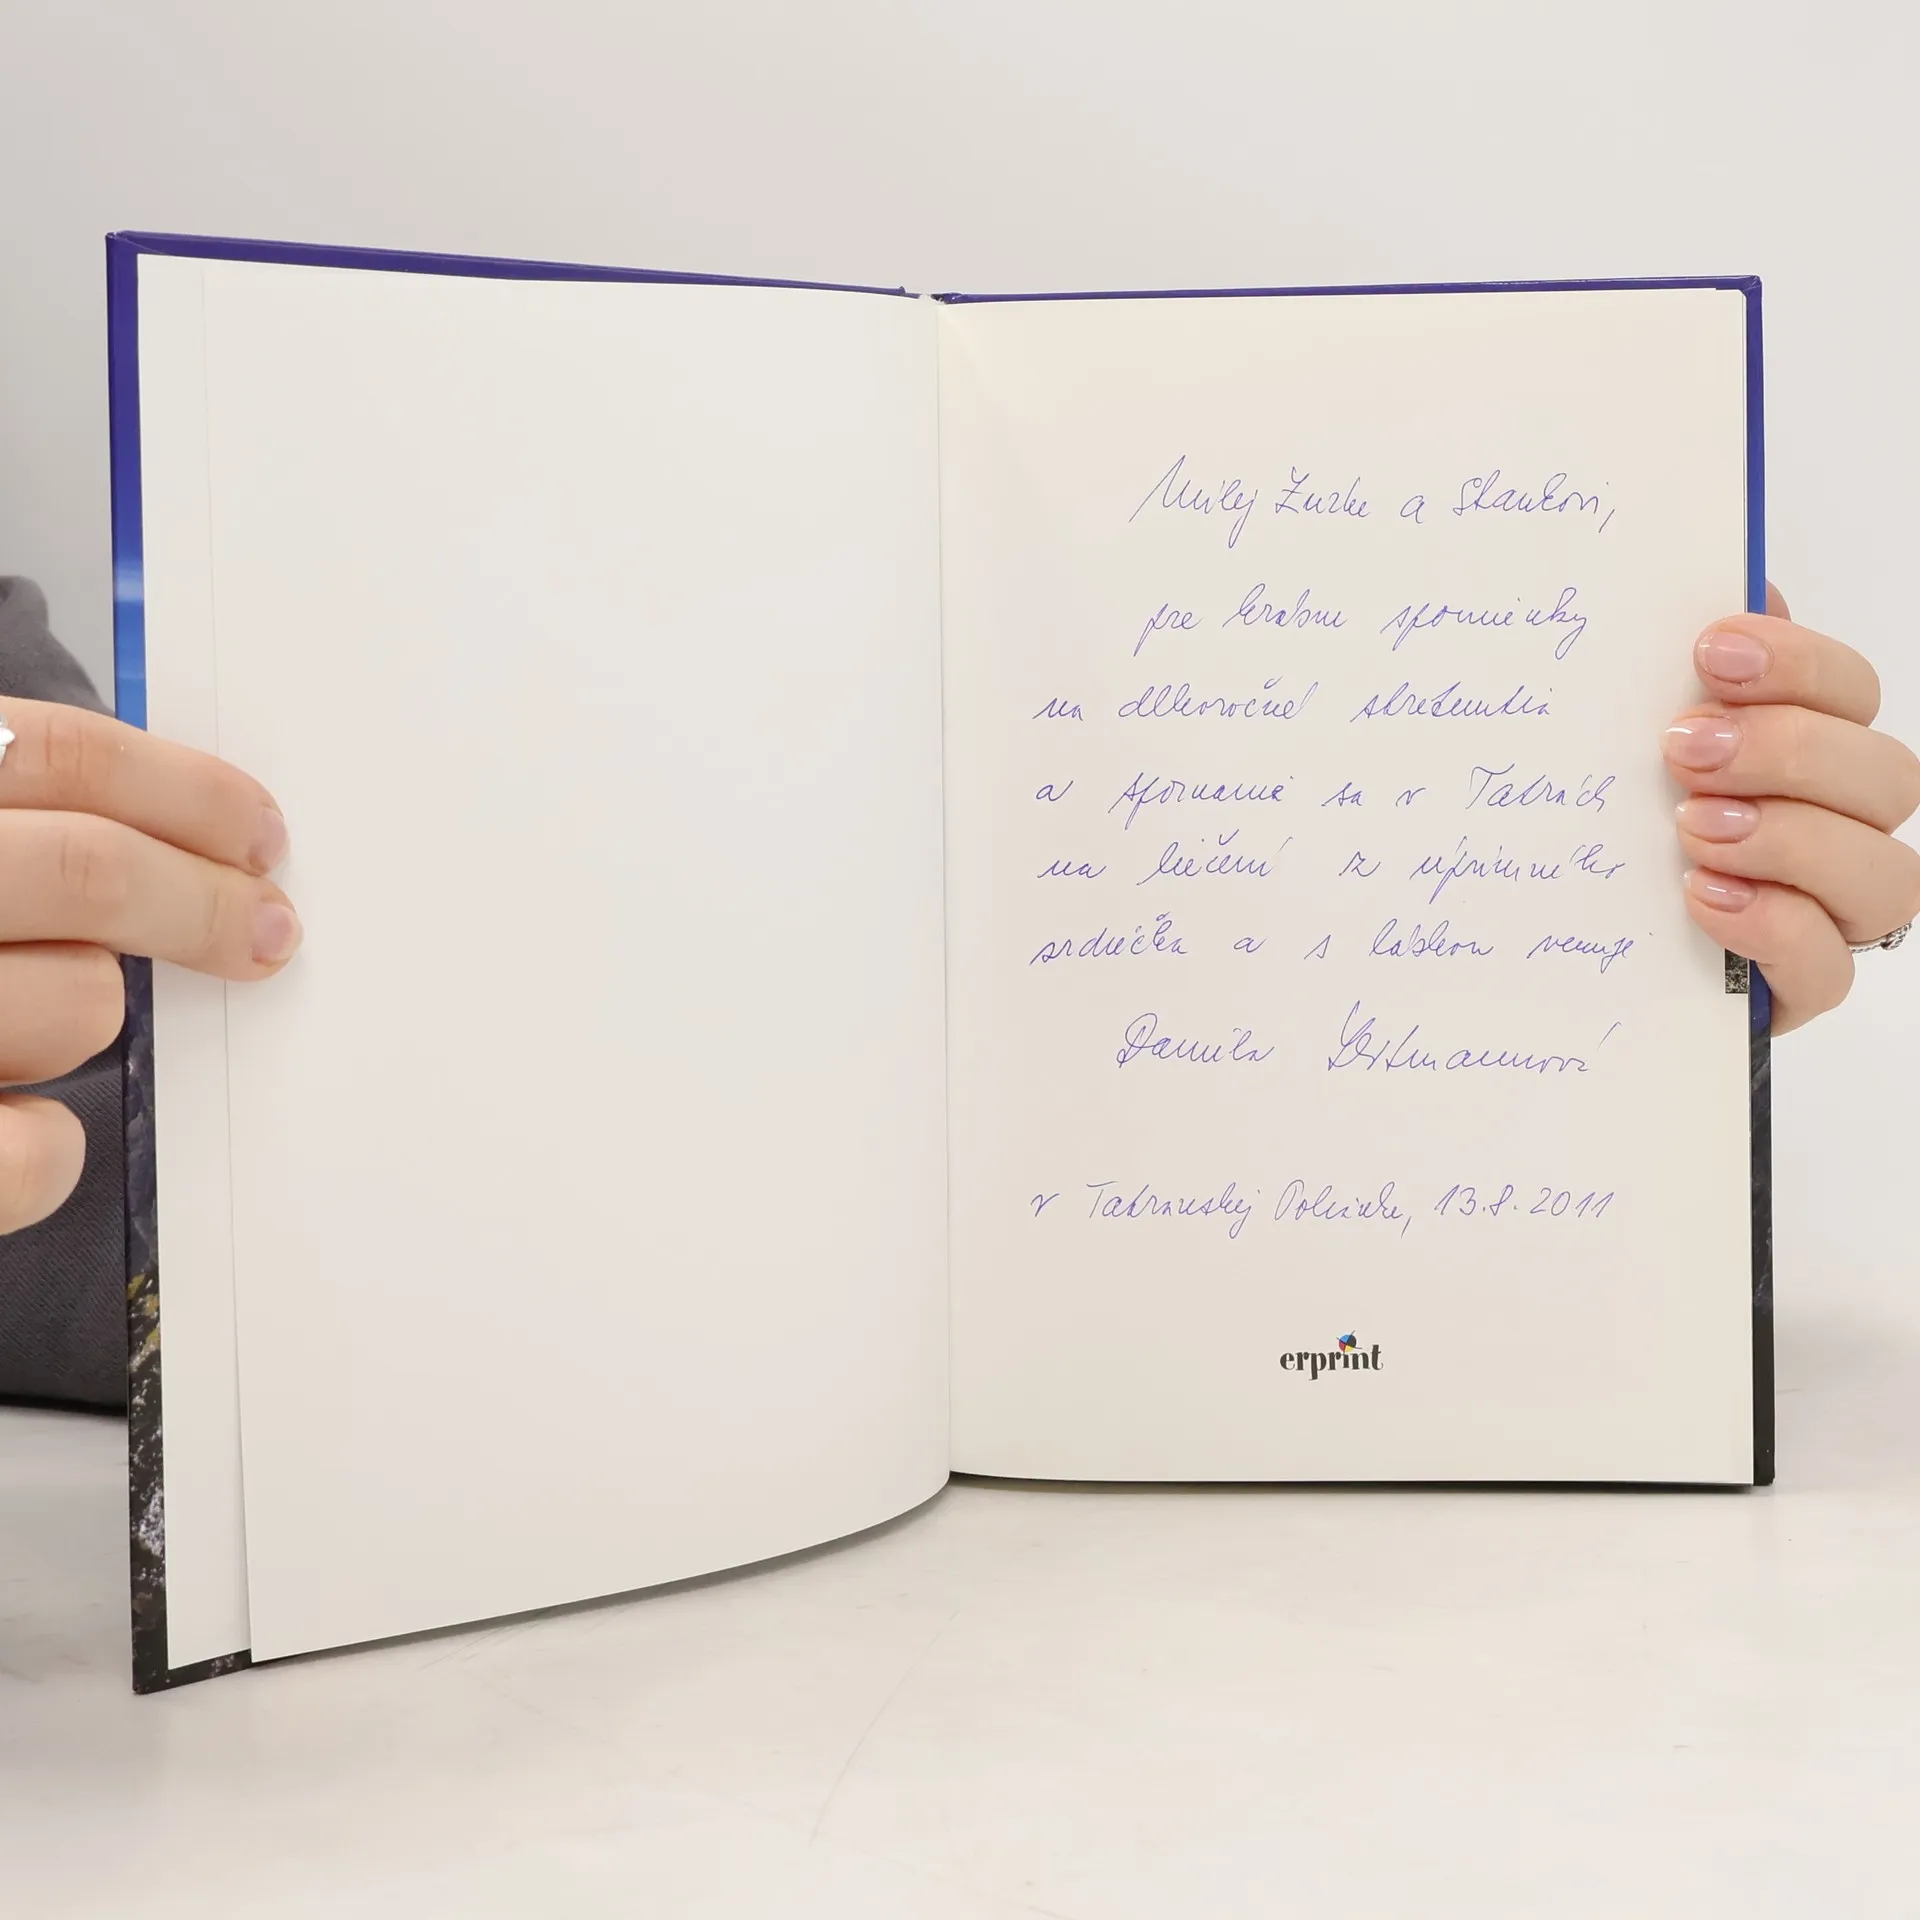 Milej Zuzke a Stankovi,
pre krásne spomienky
na dlhoročné stretnutia
a spoznania sa v Tatrách
na liečení z úprimného
srdiečka a s láskou venuje
Danila
v Tatranskej Polianke, 13.8.2011
erprint